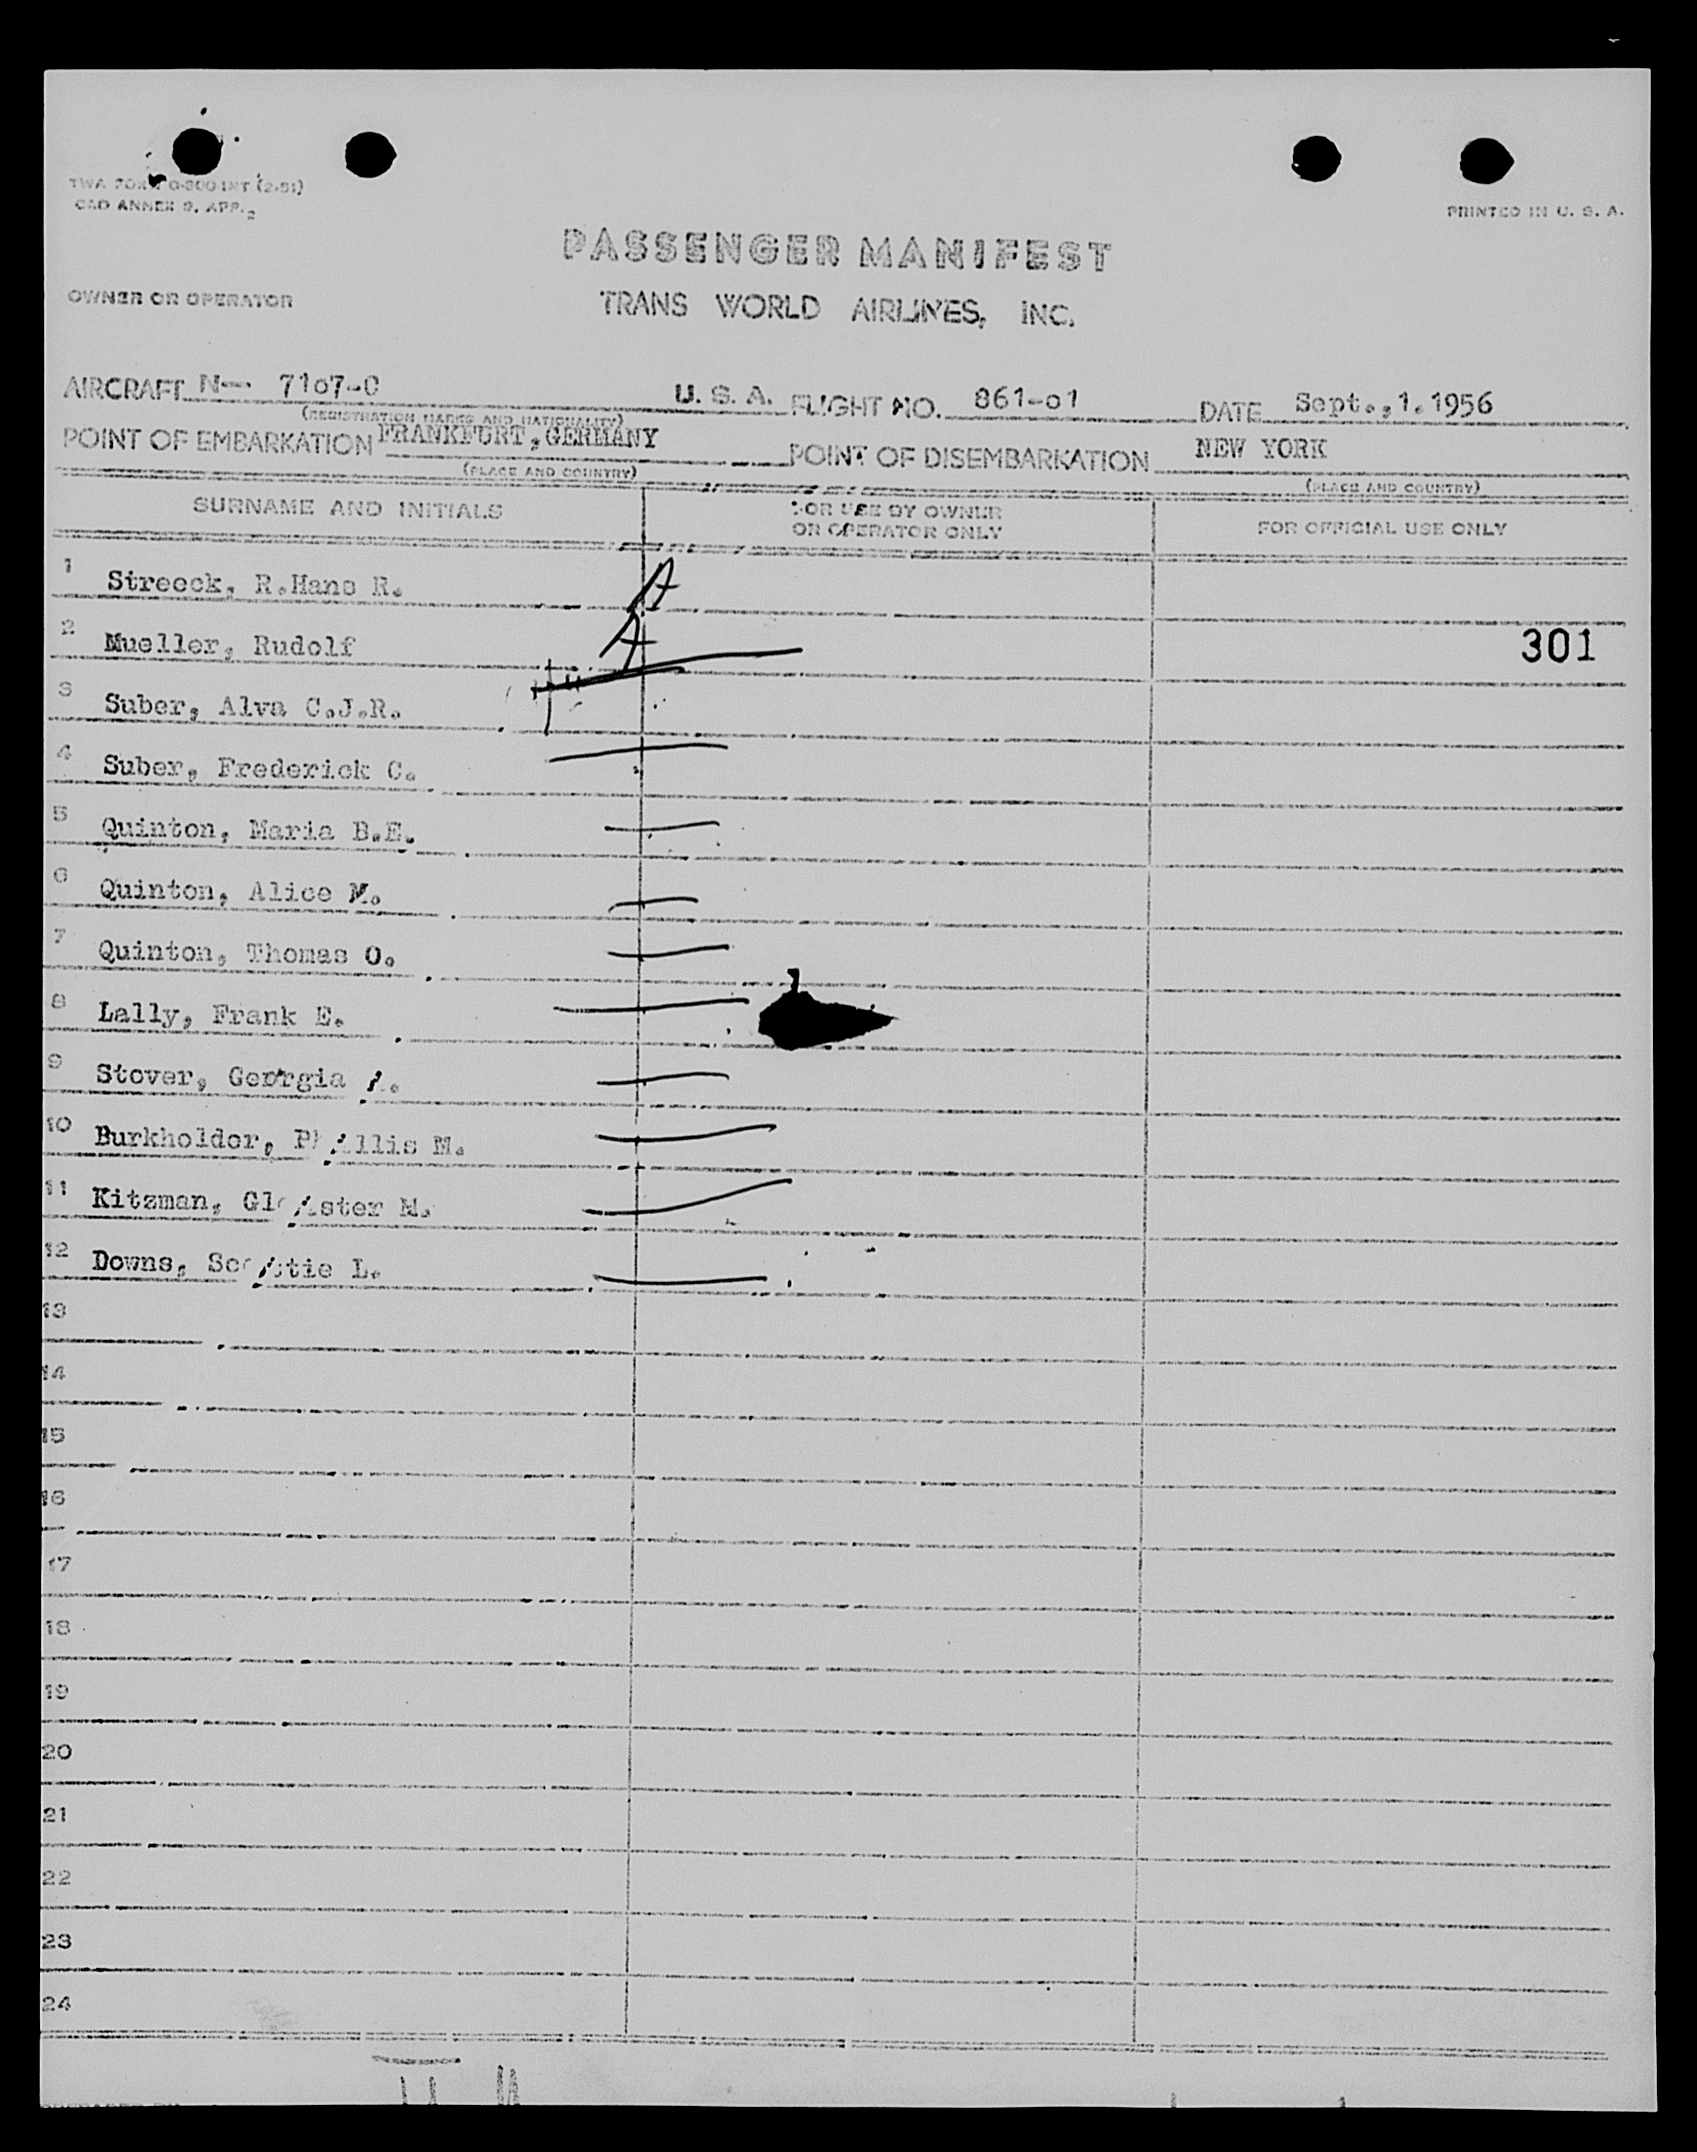 TWA FORM O-800-INT (2-51)
CAO ANNEX 9, APP. 2
PRINTED IN U. S. A.
PASSENGER MANIFEST
OWNER OR OPERATOR
TRANS WORLD AIRLINES, INC.
AIRCRAFT N-- 7107-C U. S. A. FLIGHT NO. 861-01 DATE Sept.,1.1956
(REGISTRATION MARKS AND NATIONALITY)
POINT OF EMBARKATION FRANKFURT,GERMANY POINT OF DISEMBARKATION NEW YORK
(PLACE AND COUNTRY) (PLACE AND COUNTRY)
SURNAME AND INITIALS FOR USE BY OWNER OR OPERATOR ONLY FOR OFFICIAL USE ONLY
1 Streeck, R.Hans R. A
2 Mueller, Rudolf A 301
3 Suber, Alva C.J.R.
4 Suber, Frederick C.
5 Quinton, Maria B.E.
6 Quinton, Alice M.
7 Quinton, Thomas O.
8 Lally, Frank E.
9 Stover, Georgia
10 Burkholder, Phyllis M.
11 Kitzman, M.
12 Downs, Scottie L.
13
14
15
16
17
18
19
20
21
22
23
24